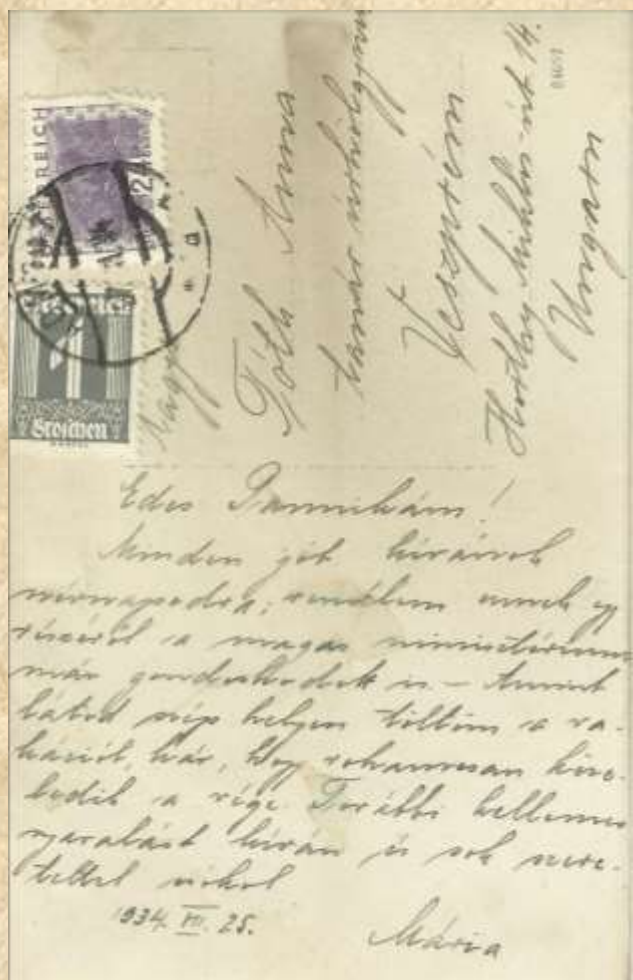 ÖSTERREICH
24
Österreich
Groschen
Nagys.
Tóth Anna
tanár úrhölgynek
Veszprém
Horthy Miklós-út 14.
Ungarn
Édes Pannikám!
Minden jót kívánok
névnapodra; remélem ennek egy
részéről a magas minisztérium
már gondoskodott is. – Amint
látod szép helyen töltöm a va-
kációt, kár, hogy rohamosan köze-
ledik a vége. További kellemes
nyaralást kíván és sok szere-
tettel ölel
1934. VII. 25.
Mária